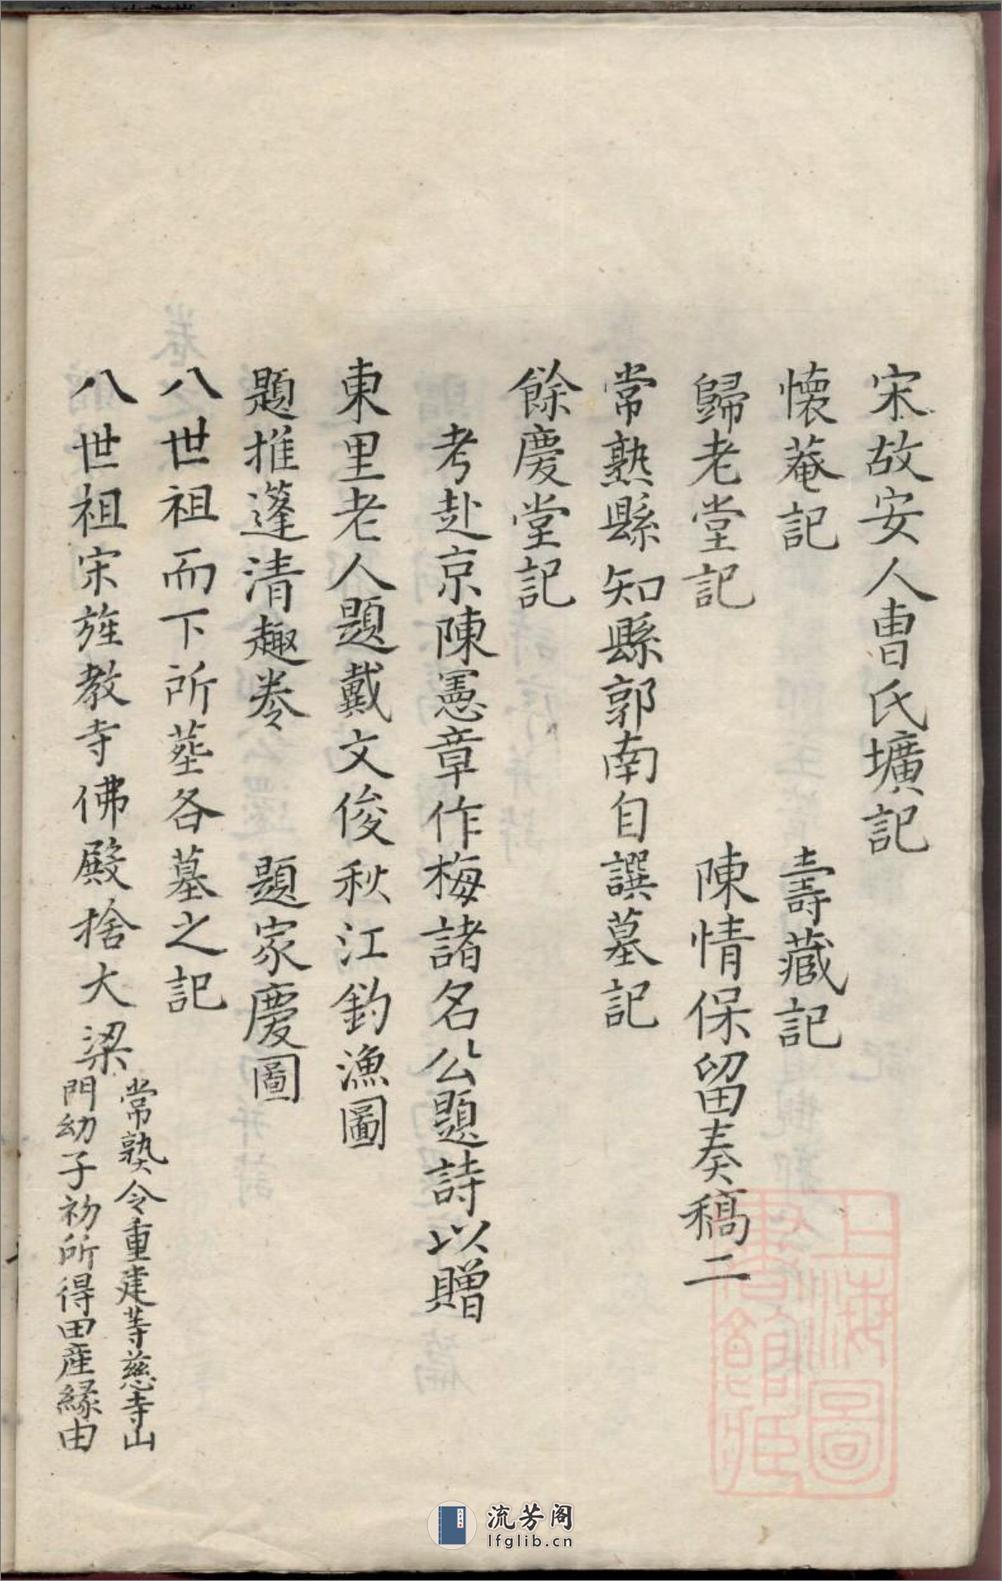 宋故安人曺氏壙記
懷菴記　壽藏記
歸老堂記　陳情保留奏稿二
常熟縣知縣郭南自譔墓記
餘慶堂記
考赴京陳憲章作梅諸名公題詩以贈
東里老人題戴文俊秋江釣漁圖
題推蓬清趣卷　題家慶圖
八世祖而下所塟各墓之記
八世祖宋旌教寺佛殿捨大梁
常熟令重建等慈寺山
門幼子初所得田産緣由
上海圖
書館藏
流芳阁
lfglib.cn